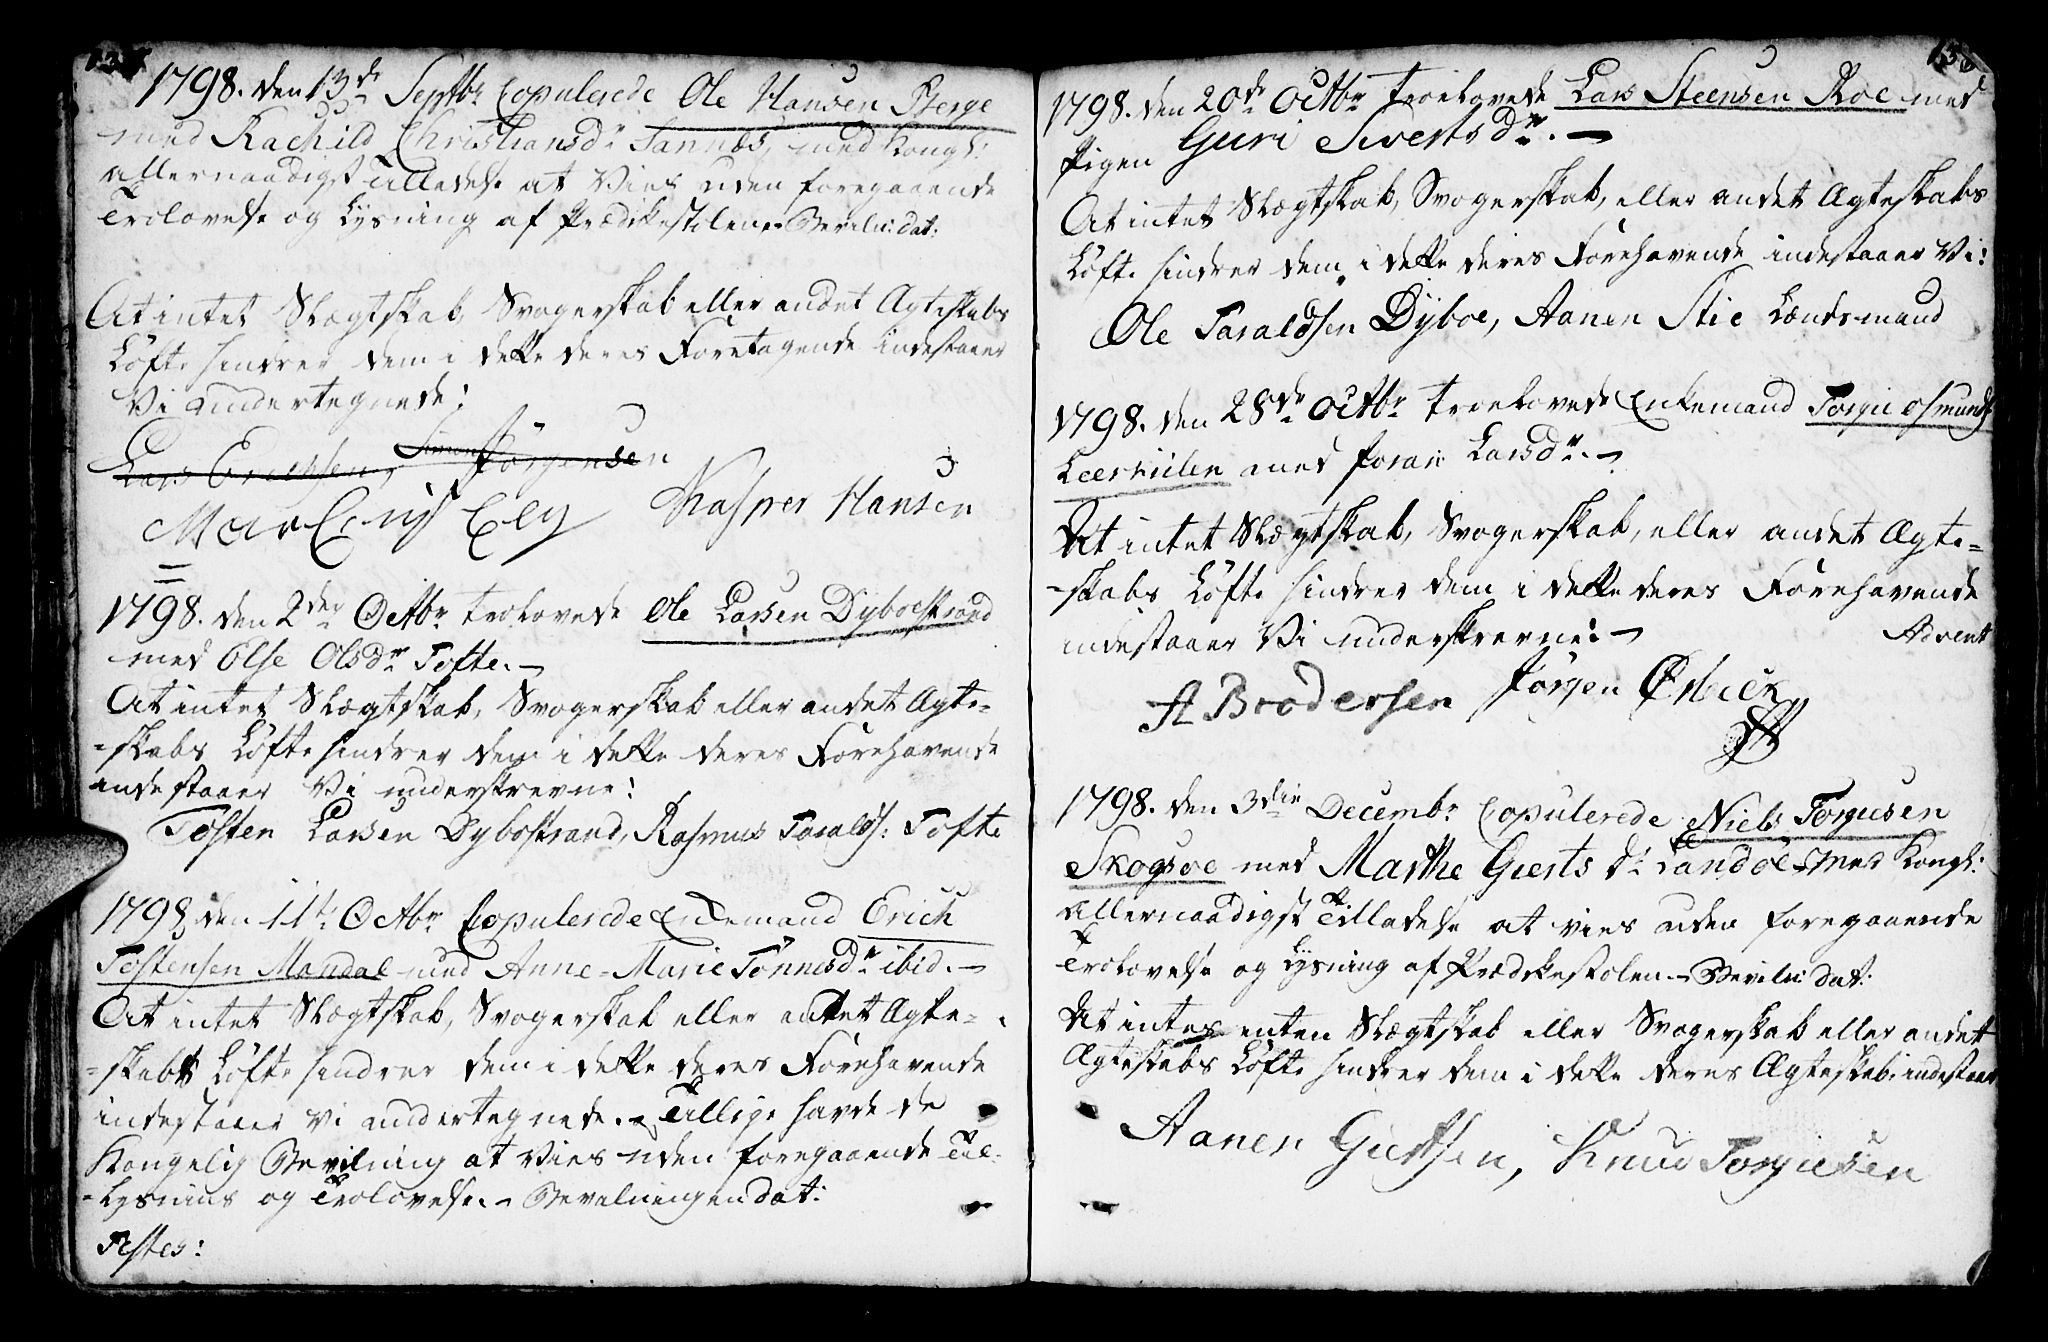 1798. den 13de Septbr Copulerede Ole Hansen Berge
med Rachild Christiansdr Tannes, med Kongl:
allernaadigst Tilladelse at Vies uden foregaaende
Trolovelse og Lysning af Prædikestolene. Beviln: dat:
At intet Slægtskab, Svogerskab eller andet Ægteskabs
Løfte hindrer dem i dette deres Foretagende indestaaer
Vi undertegnede:
Lars Erichsen, Simon Jørgensen
Kasper Hansen
1798. den 2den Octbr trolovede Ole Larsen Dyboestrand
med Else Olsdr Tofte.
At intet Slægtskab, Svogerskab eller andet Ægte-
-skabs Løfte hindrer dem i dette deres Forehavende
indestaaer Vi underskrevne:
Tosten Larsen Dybostrand, Rasmus Taralds: Tofte
1798 den 11te Octbr Copulerede Enkemand Erich
Tostensen Mandal med Anne-Marie Tønnesdr ibid.
At intet Slægtskab, Svogerskab eller andet Ægte-
-skabs Løfte hindrer dem i dette deres Forehavende
indestaaer vi undertegnede. Tillige havde de
Kongelig Bevilning at Vies uden foregaaende Til-
-lysning og Trolovelse. Bevilningen dat:
Testes:
1798. den 20de Octbr troelovede Lars Steensen Roe med
Pigen Guri Sivertsdr.
At intet Slægtskab, Svogerskab, eller andet Ægteskabs
Løfte hindrer dem i dette deres Forehavende indestaaer Vi:
Ole Taraldsen Dyboe, Aanen Stie Lændsmand
1798. den 28de Octbr troelovede Enkemand Torgie Osmunds
med Larsdr.
At intet Slægtskab, Svogerskab, eller andet Ægte-
-skabs Løfte hindrer dem i dette deres Forehavende
indestaaer Vi underskrevne:
Advent
A Brodersen Jørgen
1798. den 3die Decembr Copulerede Niels Torgiesen
Skogsøe med Marthe Giertsdr Landøe med Kongl:
allernaadigst Tilladelse at vies uden foregaaende
Trolovelse og Lysning af Prædikestolen. Beviln: dat:
At intet enten Slægtskab eller Svogerskab eller andet
Ægteskabs Løfte hindrer dem i dette deres Ægteskab, indestaaer
Aanen Giertsen, Knud Torgiesen